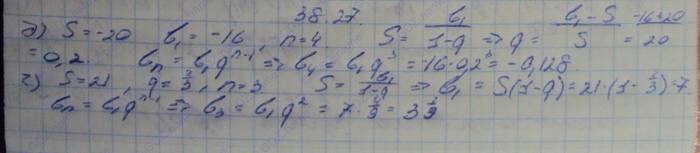 38.27
в) S=-20 b₁=-16, n=4. S= b₁/1-q ⇒ q= b₁-S/S = -16+20/20
= 0,2. bₙ=b₁qⁿ⁻¹ ⇒ b₄=b₁q³=-16·0,2³=-0,128
г) S=21, q=2/3, n=3. S= b₁/1-q ⇒ b₁=S(1-q)=21·(1-2/3)=7
bₙ=b₁qⁿ⁻¹ ⇒ b₃=b₁q²=7·4/9=3 1/9